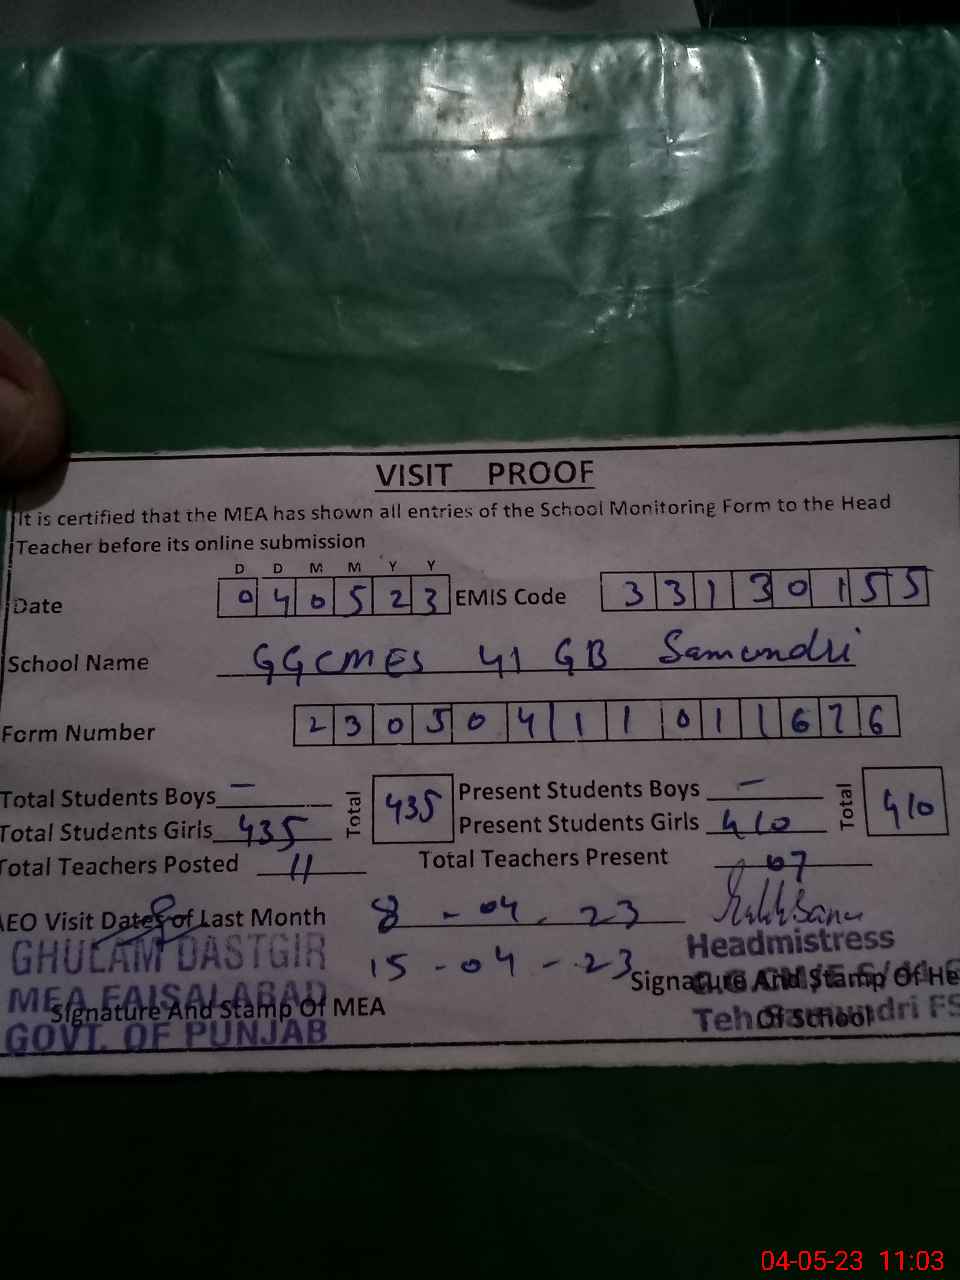 VISIT PROOF
It is certified that the MEA has shown all entries of the School Monitoring Form to the Head
Teacher before its online submission
D D M M Y Y
Date 0 4 0 5 2 3 EMIS Code 3 3 1 3 0 1 5 5
School Name GGCMES 41 GB Samundri
Form Number 2 3 0 5 0 4 1 1 0 1 1 6 7 6
Total Students Boys — Total 435 Present Students Boys — Total 410
Total Students Girls 435 Present Students Girls 410
Total Teachers Posted 11 Total Teachers Present 07
AEO Visit Dates of Last Month 8 - 04 - 23
15 - 04 - 23
GHULAM DASTGIR
MEA FAISALABAD
GOVT. OF PUNJAB
Signature And Stamp Of MEA
Headmistress
Signature And Stamp Of He
Of School
Teh Samundri FS
04-05-23 11:03